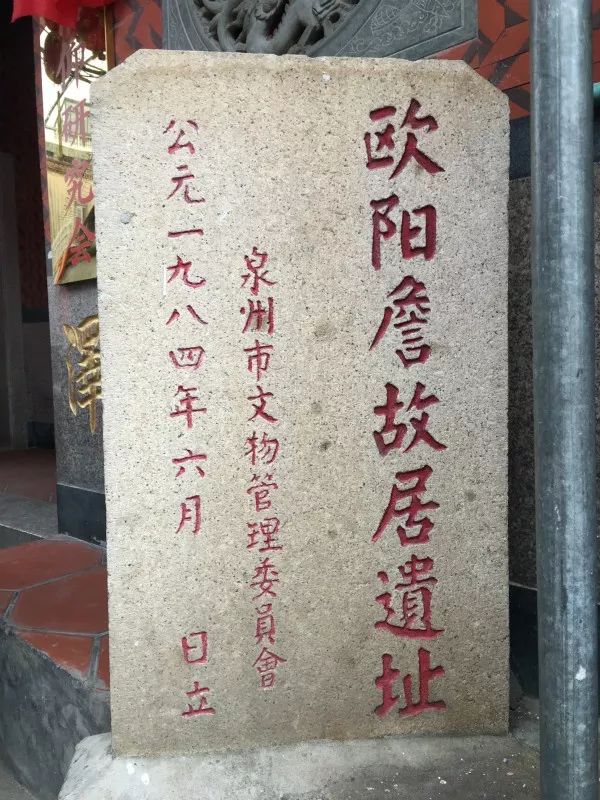 欧阳詹故居遺址
泉州市文物管理委員會
公元一九八四年六月 日立
研究会
澤